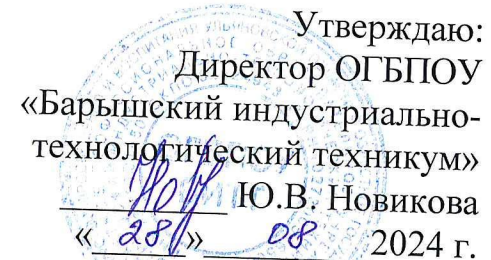 Утверждаю:
Директор ОГБПОУ
«Барышский индустриально-
технологический техникум»
Ю.В. Новикова
«28» 08 2024 г.